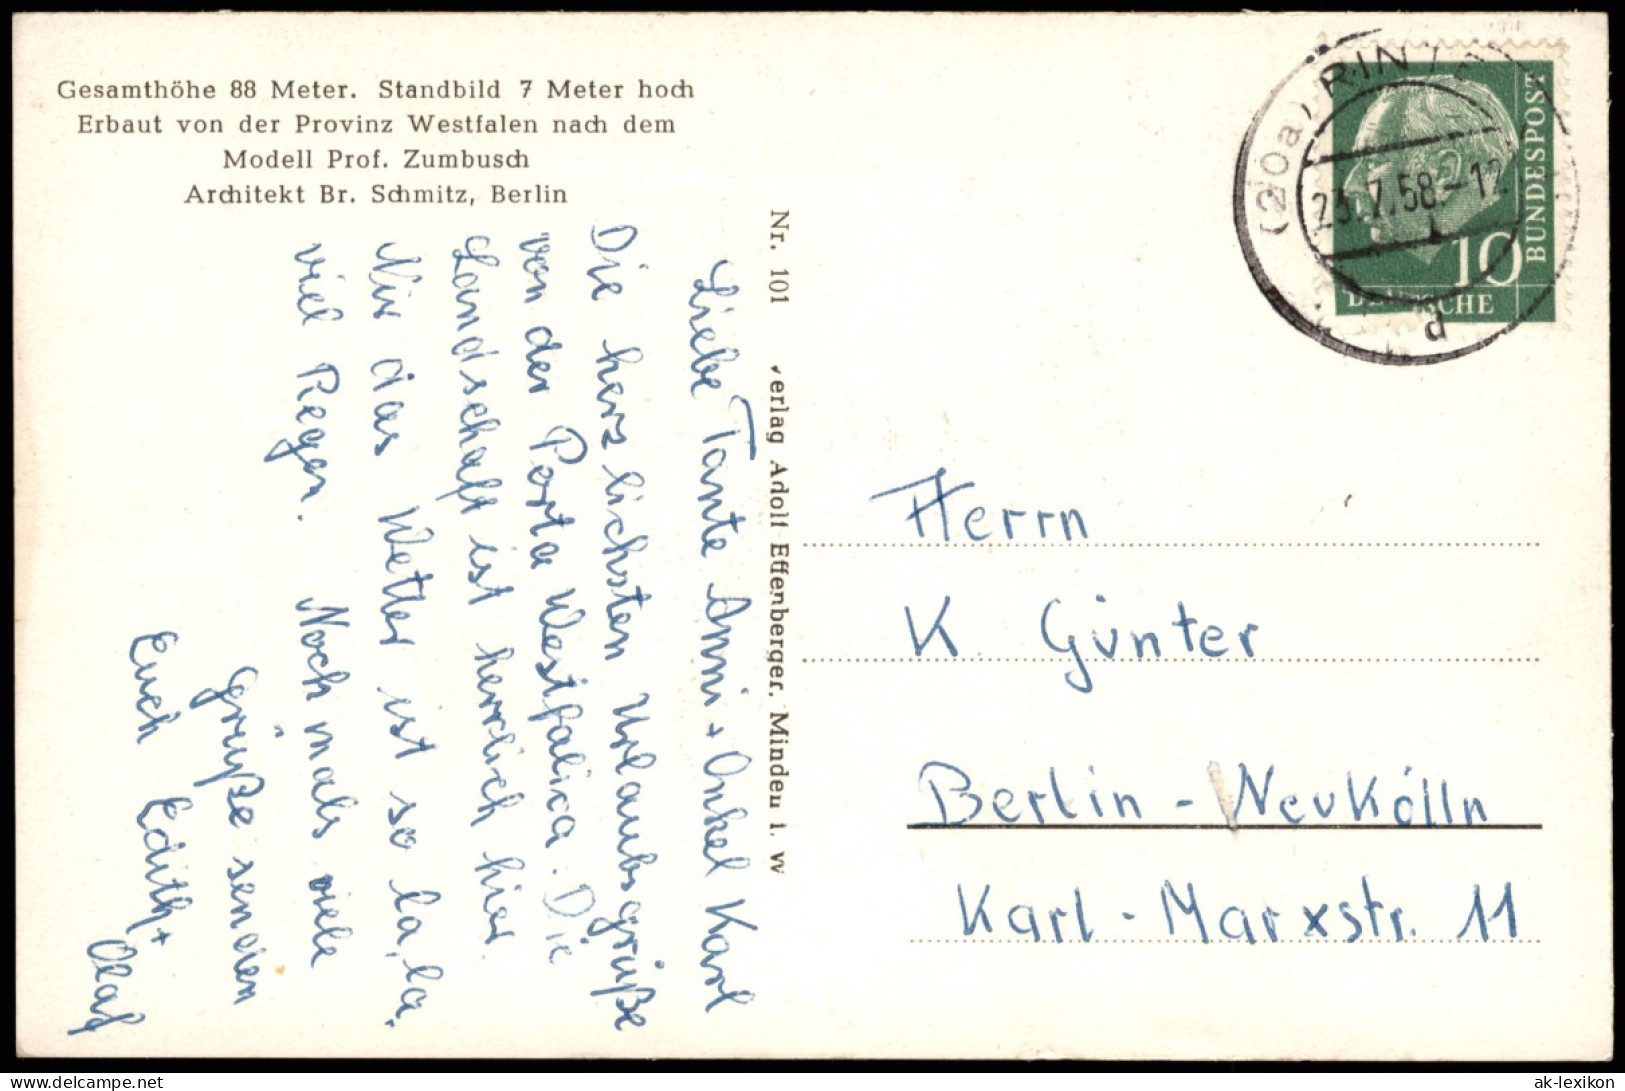 Gesamthöhe 88 Meter. Standbild 7 Meter hoch
Erbaut von der Provinz Westfalen nach dem
Modell Prof. Zumbusch
Architekt Br. Schmitz, Berlin
Liebe Tante Anni + Onkel Karl
Die herzlichsten Urlaubsgrüße
von der Porta Westfalica. Die
Landschaft ist herrlich hier.
Nur das Wetter ist so la, la,
viel Regen. Nochmals viele
Grüße senden
Euch Edith +
Olaf
Nr. 101 Verlag Adolf Effenberger, Minden i. W
(20a) RINTE
23.7.58.-12
d
10
BUNDESPOST
DEUTSCHE
Herrn
K Günter
Berlin - Neukölln
Karl - Marxstr. 11
ak-lexikon